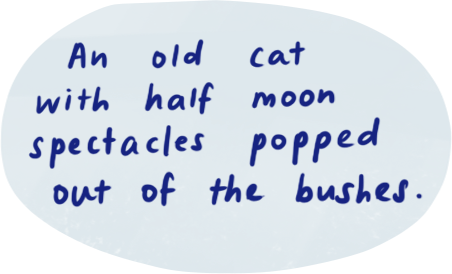 An old cat
with half moon
spectacles popped
out of the bushes.